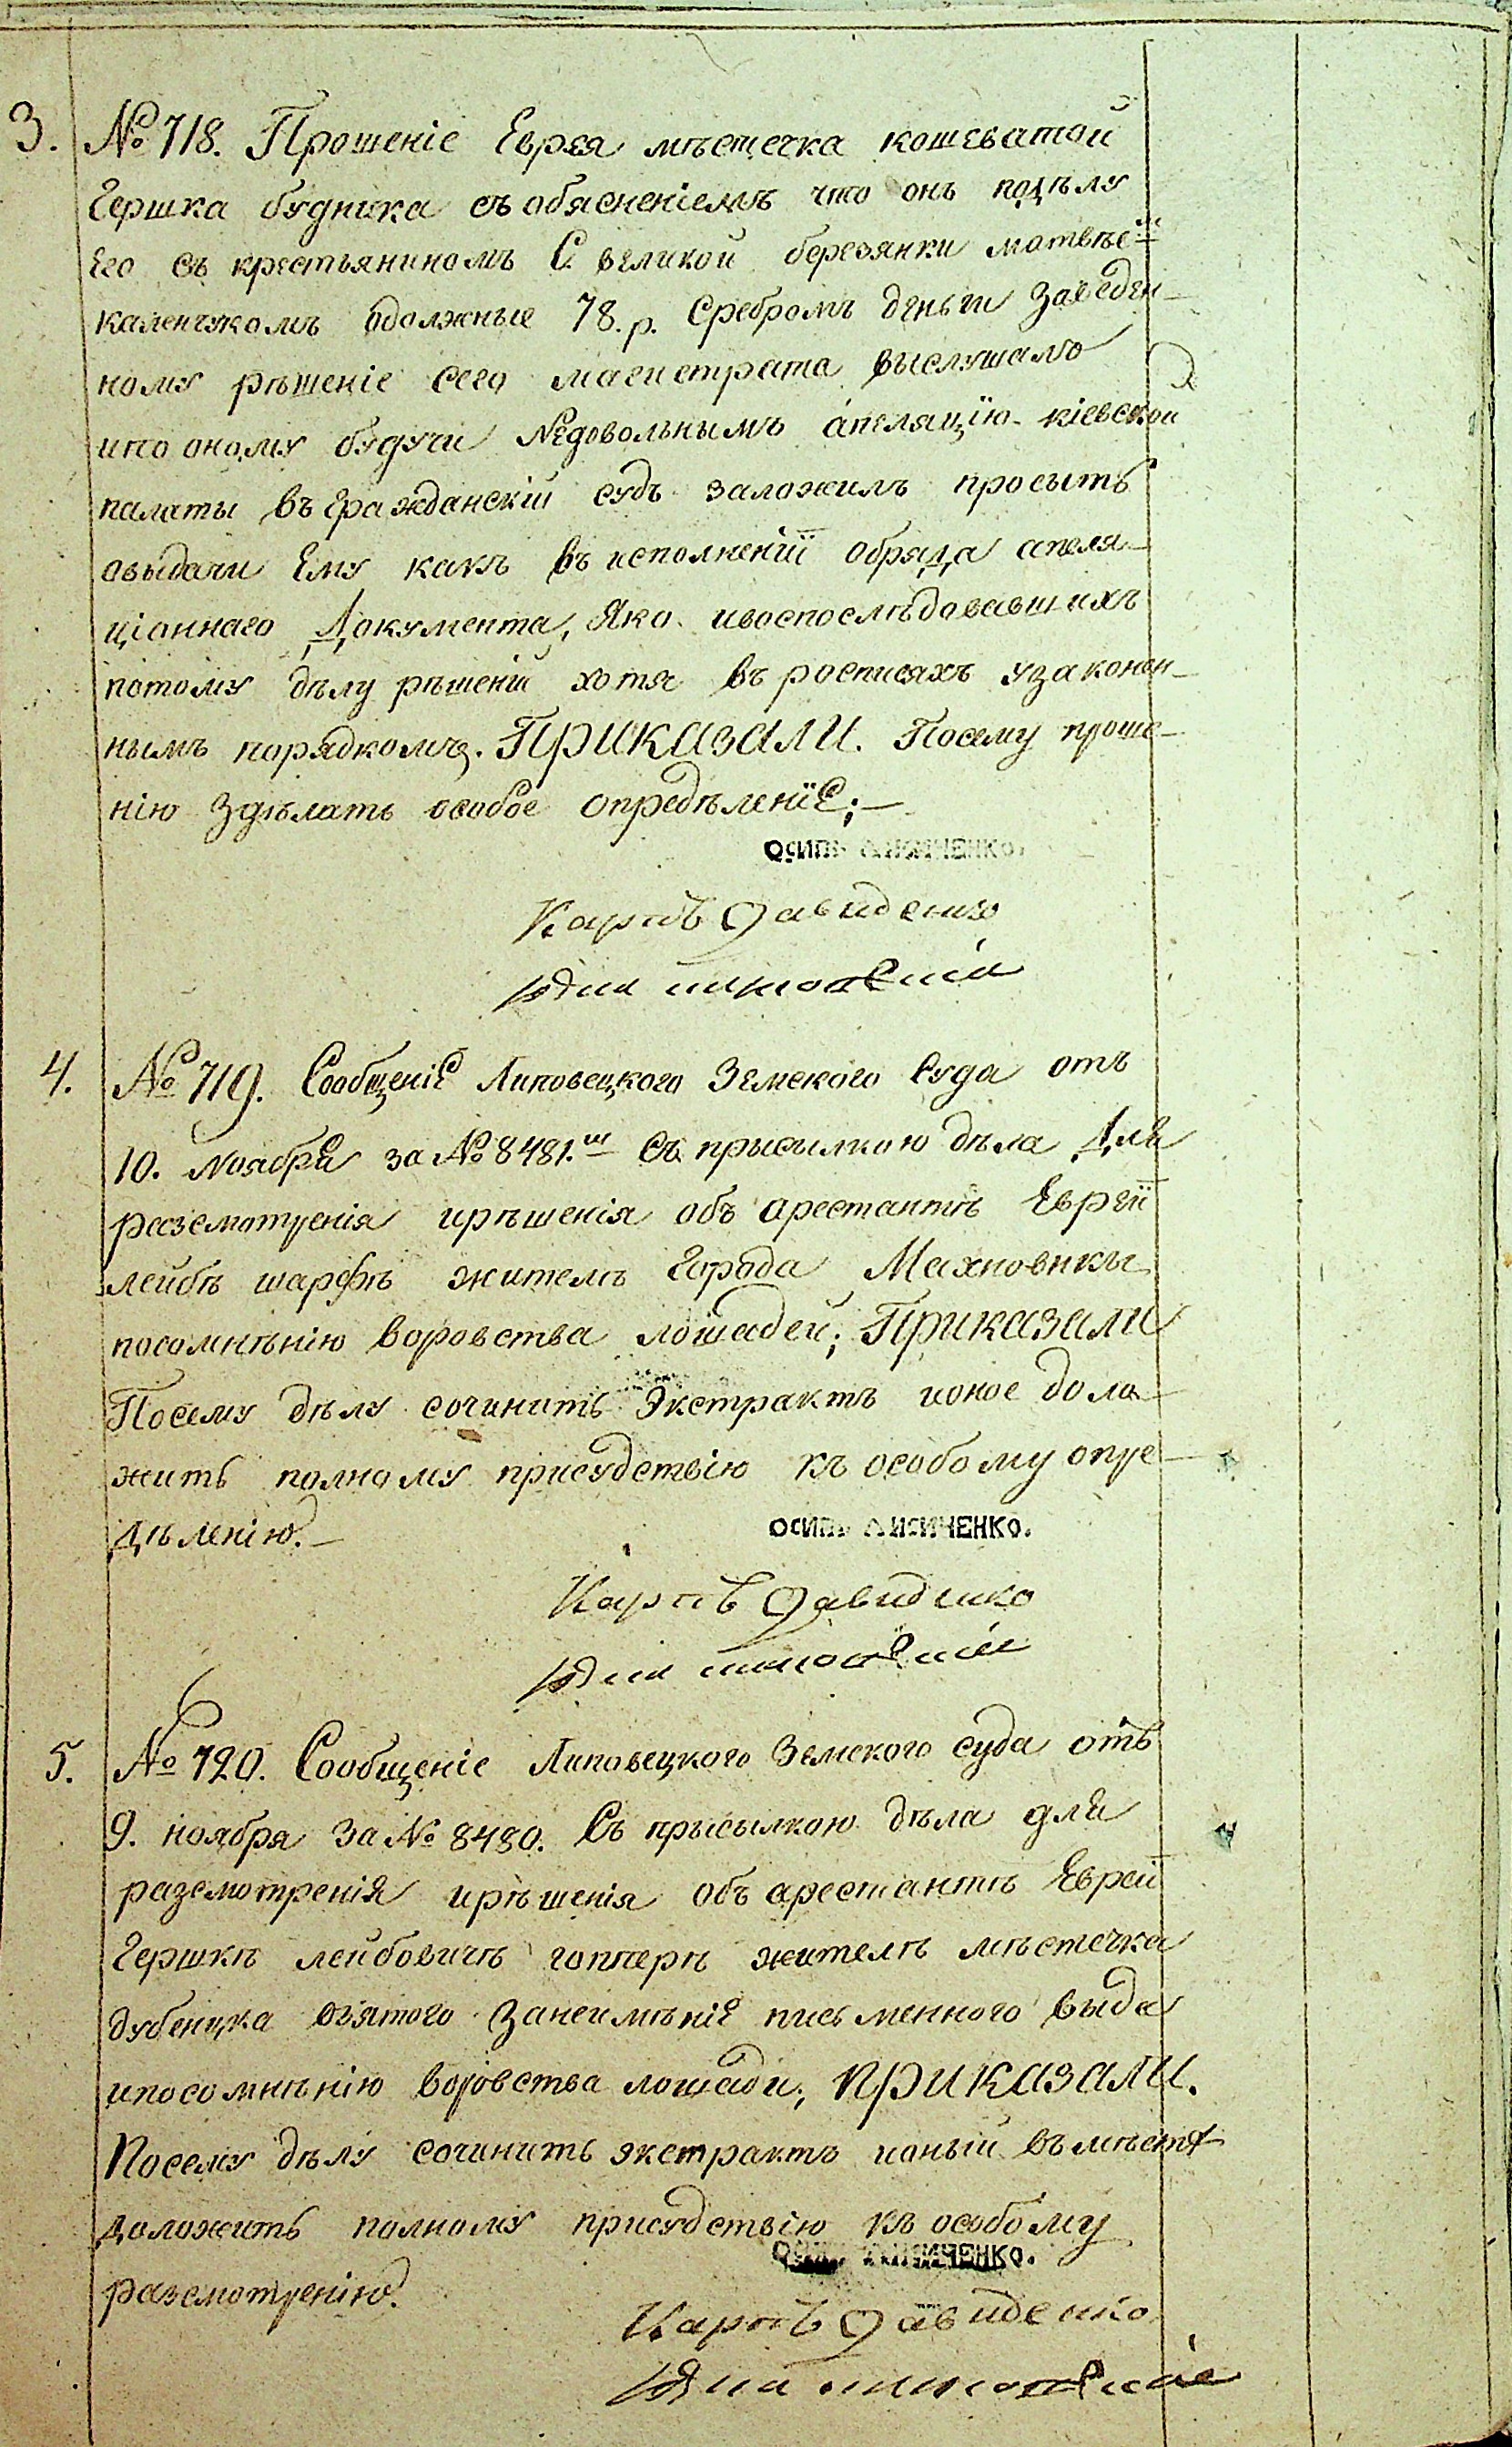 3. № 718. Прошеніе Еврея мѣстечка кошеватой
Гершка будника съ обясненіемъ что онъ подѣлу
Его съ крестьяниномъ С. великой березянки матвѣё
каленчукомъ одолжные 78. р. Сребромъ деньги Заведен-
ному рѣшеніе сего магистрата выслушалъ
ипо оному будучи Недовольнымъ апеляцїю кіевской
палаты въ Гражданскій судъ заложилъ просытъ
овыдачи Ему какъ въ исполненіи обряда апеля-
ціоннаго Документа, Яко ивоспослѣдовавшихъ
потому дѣлу рѣшеніи хотя въ росписяхъ узаконен-
нымъ порядкомъ. Приказали. Посему проше-
нію Здѣлать особое опредѣленїе;-
ОСИПЪ ЛИСИЧЕНКО.
Карпъ Давиденко
4. № 719. Сообщеніе Липовецкого Земского Суда отъ
10. Ноября за № 8481.ш Съ прысылкою дѣла Для
разсмотренія ирѣшенія объ арестантѣ Евреи
лейбѣ шарфѣ жителѣ Города Махновкы
посомнѣнію воровства лошадей; Приказали
Посему дѣлу сочинить Экстрактъ ионое дола-
жить полному присудствію къ особому опре-
дѣленію.-
ОСИПЪ ЛИСИЧЕНКО.
Карпъ Давиденко
5. № 720. Сообщеніе Липовецкого Земского суда отъ
9. ноября За № 8480. Съ прысылкою дѣла для
разсмотренія ирѣшенія объ арестантѣ Евреи
Гершкѣ лейбовичѣ гоптерѣ жителѣ мѣстечка
дубенцка взятого Занеимѣніе письменного выда
ипосомнѣнію воровства лошади; приказали.
Посему дѣлу сочинить экстрактъ ионый въмѣстѣ
доложить полному присудствію къ особому
ОСИПЪ ЛИСИЧЕНКО.
разсмотренію.
Карпъ Давиденко